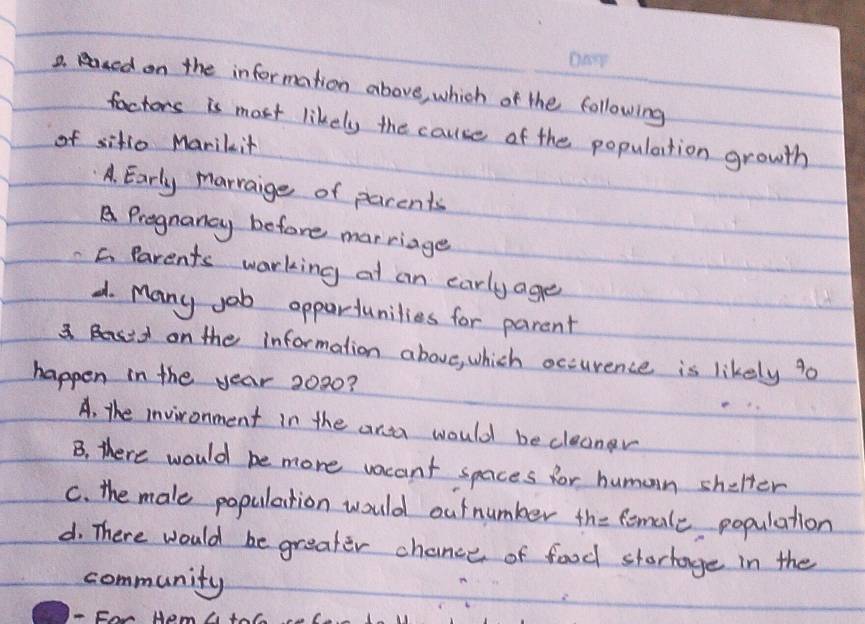 DATE
2. Based on the information above, which of the following
factors is most likely the cause of the population growth
of sitio Marikit
A. Early marraige of parents
B. Pregnancy before marriage
C. Parents working at an early age
d. Many job opportunities for parent
3. Based on the information above, which occurence is likely to
happen in the year 2020?
A. the invironment in the area would be cleaner
B. there would be more vacant spaces for human shelter
C. the male population would outnumber the female population
d. There would be greater chance of food stortage in the
community
- For